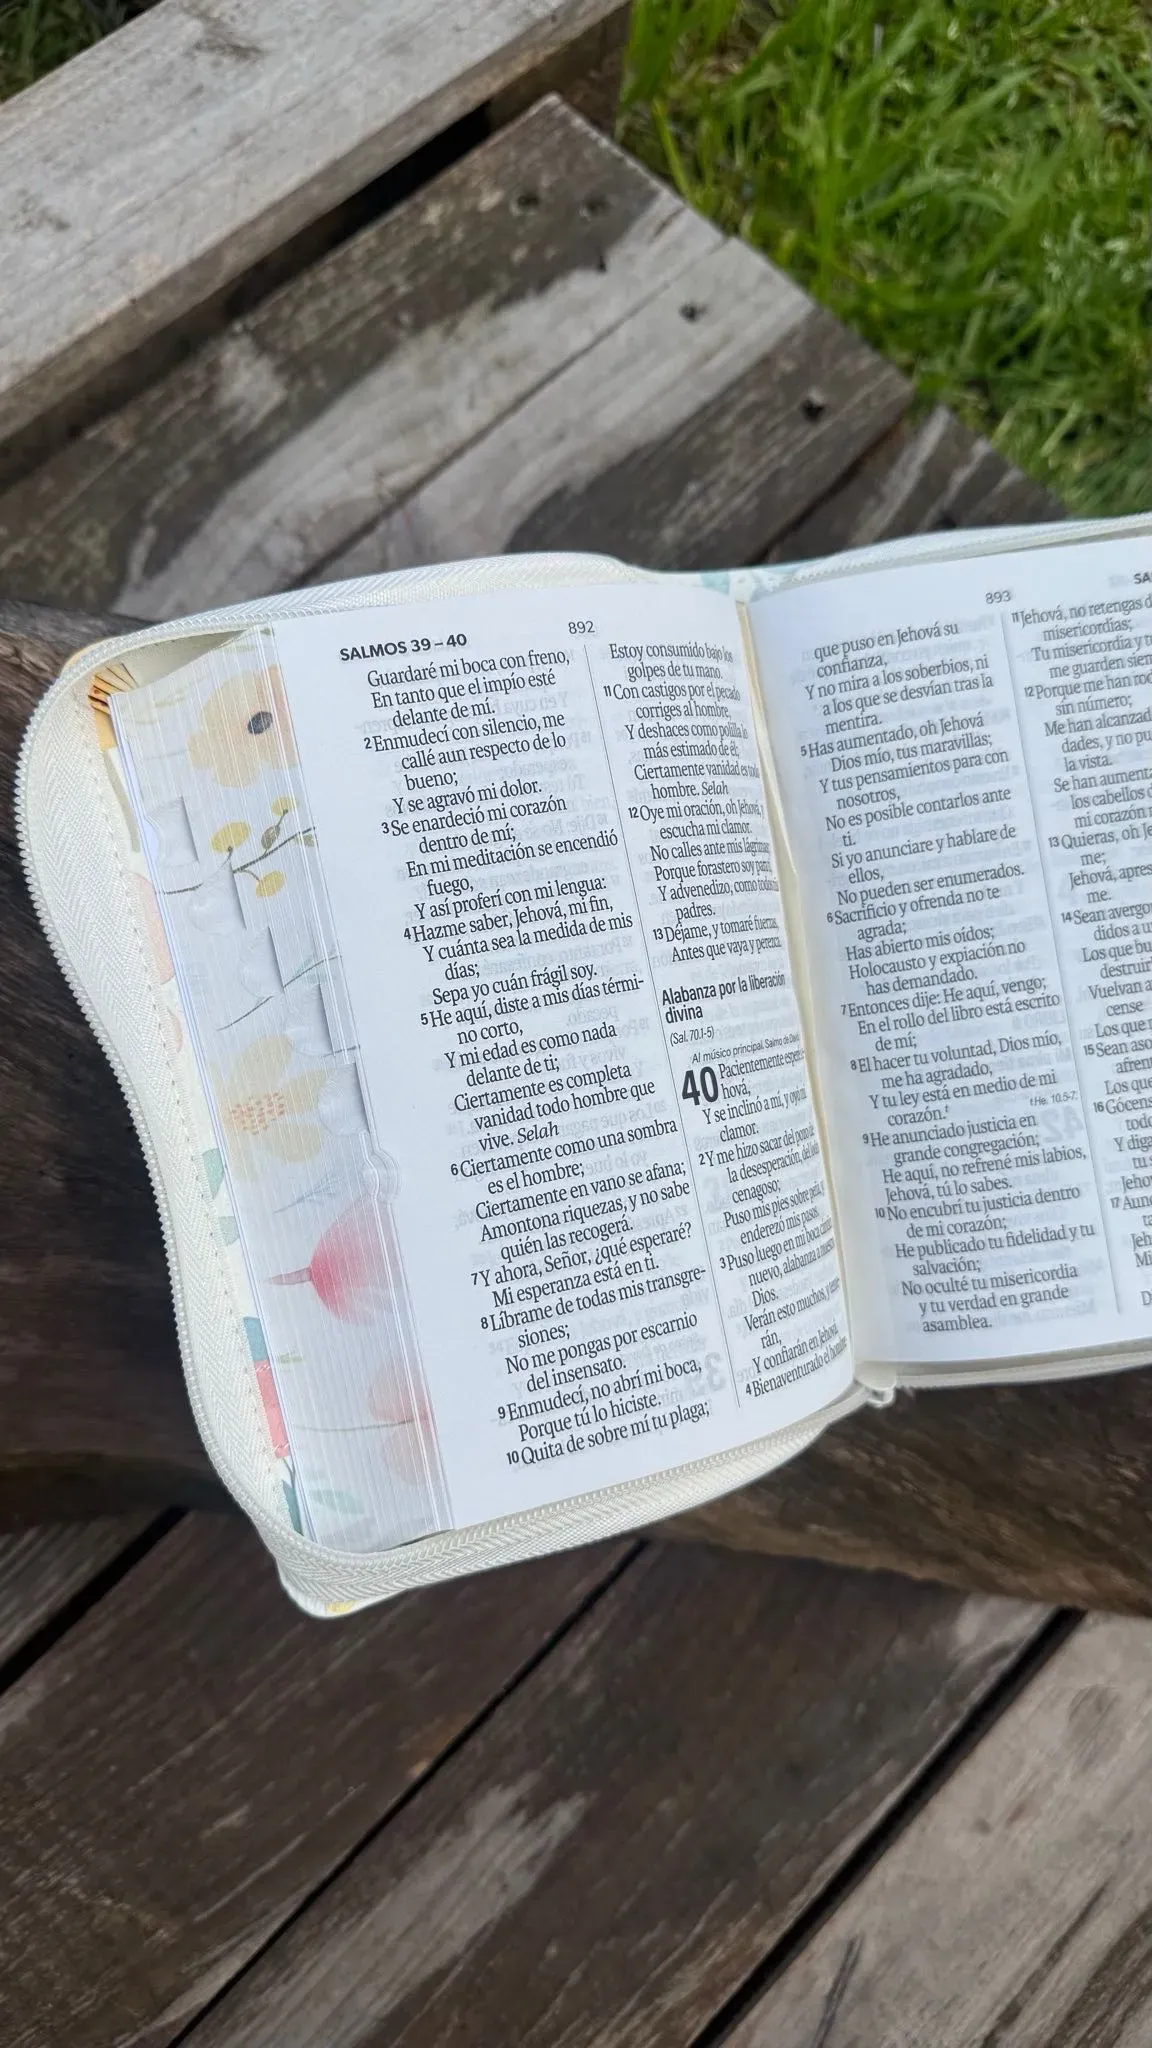 SALMOS 39 – 40
892
Guardaré mi boca con freno,
En tanto que el impío esté
delante de mí.
2 Enmudecí con silencio, me
callé aun respecto de lo
bueno;
Y se agravó mi dolor.
3 Se enardeció mi corazón
dentro de mí;
En mi meditación se encendió
fuego,
Y así proferí con mi lengua:
4 Hazme saber, Jehová, mi fin,
Y cuánta sea la medida de mis
días;
Sepa yo cuán frágil soy.
5 He aquí, diste a mis días térmi-
no corto,
Y mi edad es como nada
delante de ti;
Ciertamente es completa
vanidad todo hombre que
vive. Selah
6 Ciertamente como una sombra
es el hombre;
Ciertamente en vano se afana;
Amontona riquezas, y no sabe
quién las recogerá.
7 Y ahora, Señor, ¿qué esperaré?
Mi esperanza está en ti.
8 Líbrame de todas mis transgre-
siones;
No me pongas por escarnio
del insensato.
9 Enmudecí, no abrí mi boca,
Porque tú lo hiciste.
10 Quita de sobre mí tu plaga;
Estoy consumido bajo los
golpes de tu mano.
11 Con castigos por el pecado
corriges al hombre,
Y deshaces como polilla lo
más estimado de él;
Ciertamente vanidad es todo
hombre. Selah
12 Oye mi oración, oh Jehová, y
escucha mi clamor.
No calles ante mis lágrimas;
Porque forastero soy para
Y advenedizo, como todos
padres.
13 Déjame, y tomaré fuerzas,
Antes que vaya y perezca.
Alabanza por la liberación
divina
(Sal. 70.1-5)
Al músico principal. Salmo de David.
40 Pacientemente
hová,
Y se inclinó a mí, y oyó mi
clamor.
2 Y me hizo sacar del pozo de
la desesperación, del lodo
cenagoso;
Puso mis pies sobre peña, y
enderezó mis pasos.
3 Puso luego en mi boca cántico
nuevo, alabanza a nuestro
Dios.
Verán esto muchos, y
rán,
Y confiarán en Jehová.
4 Bienaventurado el hombre
893
que puso en Jehová su
confianza,
Y no mira a los soberbios, ni
a los que se desvían tras la
mentira.
5 Has aumentado, oh Jehová
Dios mío, tus maravillas;
Y tus pensamientos para con
nosotros,
No es posible contarlos ante
ti.
Si yo anunciare y hablare de
ellos,
No pueden ser enumerados.
6 Sacrificio y ofrenda no te
agrada;
Has abierto mis oídos;
Holocausto y expiación no
has demandado.
7 Entonces dije: He aquí, vengo;
En el rollo del libro está escrito
de mí;
8 El hacer tu voluntad, Dios mío,
me ha agradado,
Y tu ley está en medio de mi
corazón.t
t He. 10.5-7.
9 He anunciado justicia en
grande congregación;
He aquí, no refrené mis labios,
Jehová, tú lo sabes.
10 No encubrí tu justicia dentro
de mi corazón;
He publicado tu fidelidad y tu
salvación;
No oculté tu misericordia
y tu verdad en grande
asamblea.
SA
11 Jehová, no retengas
misericordias;
Tu misericordia y
me guarden
12 Porque me han
sin número;
Me han
dades, y no
la vista.
Se han
los cabellos
mi corazón
13 Quieras, oh
me;
Jehová,
me.
14 Sean
didos a
Los que
Vuelvan
cense
Los que
15 Sean
Los que
16
todo
Y
tu
17